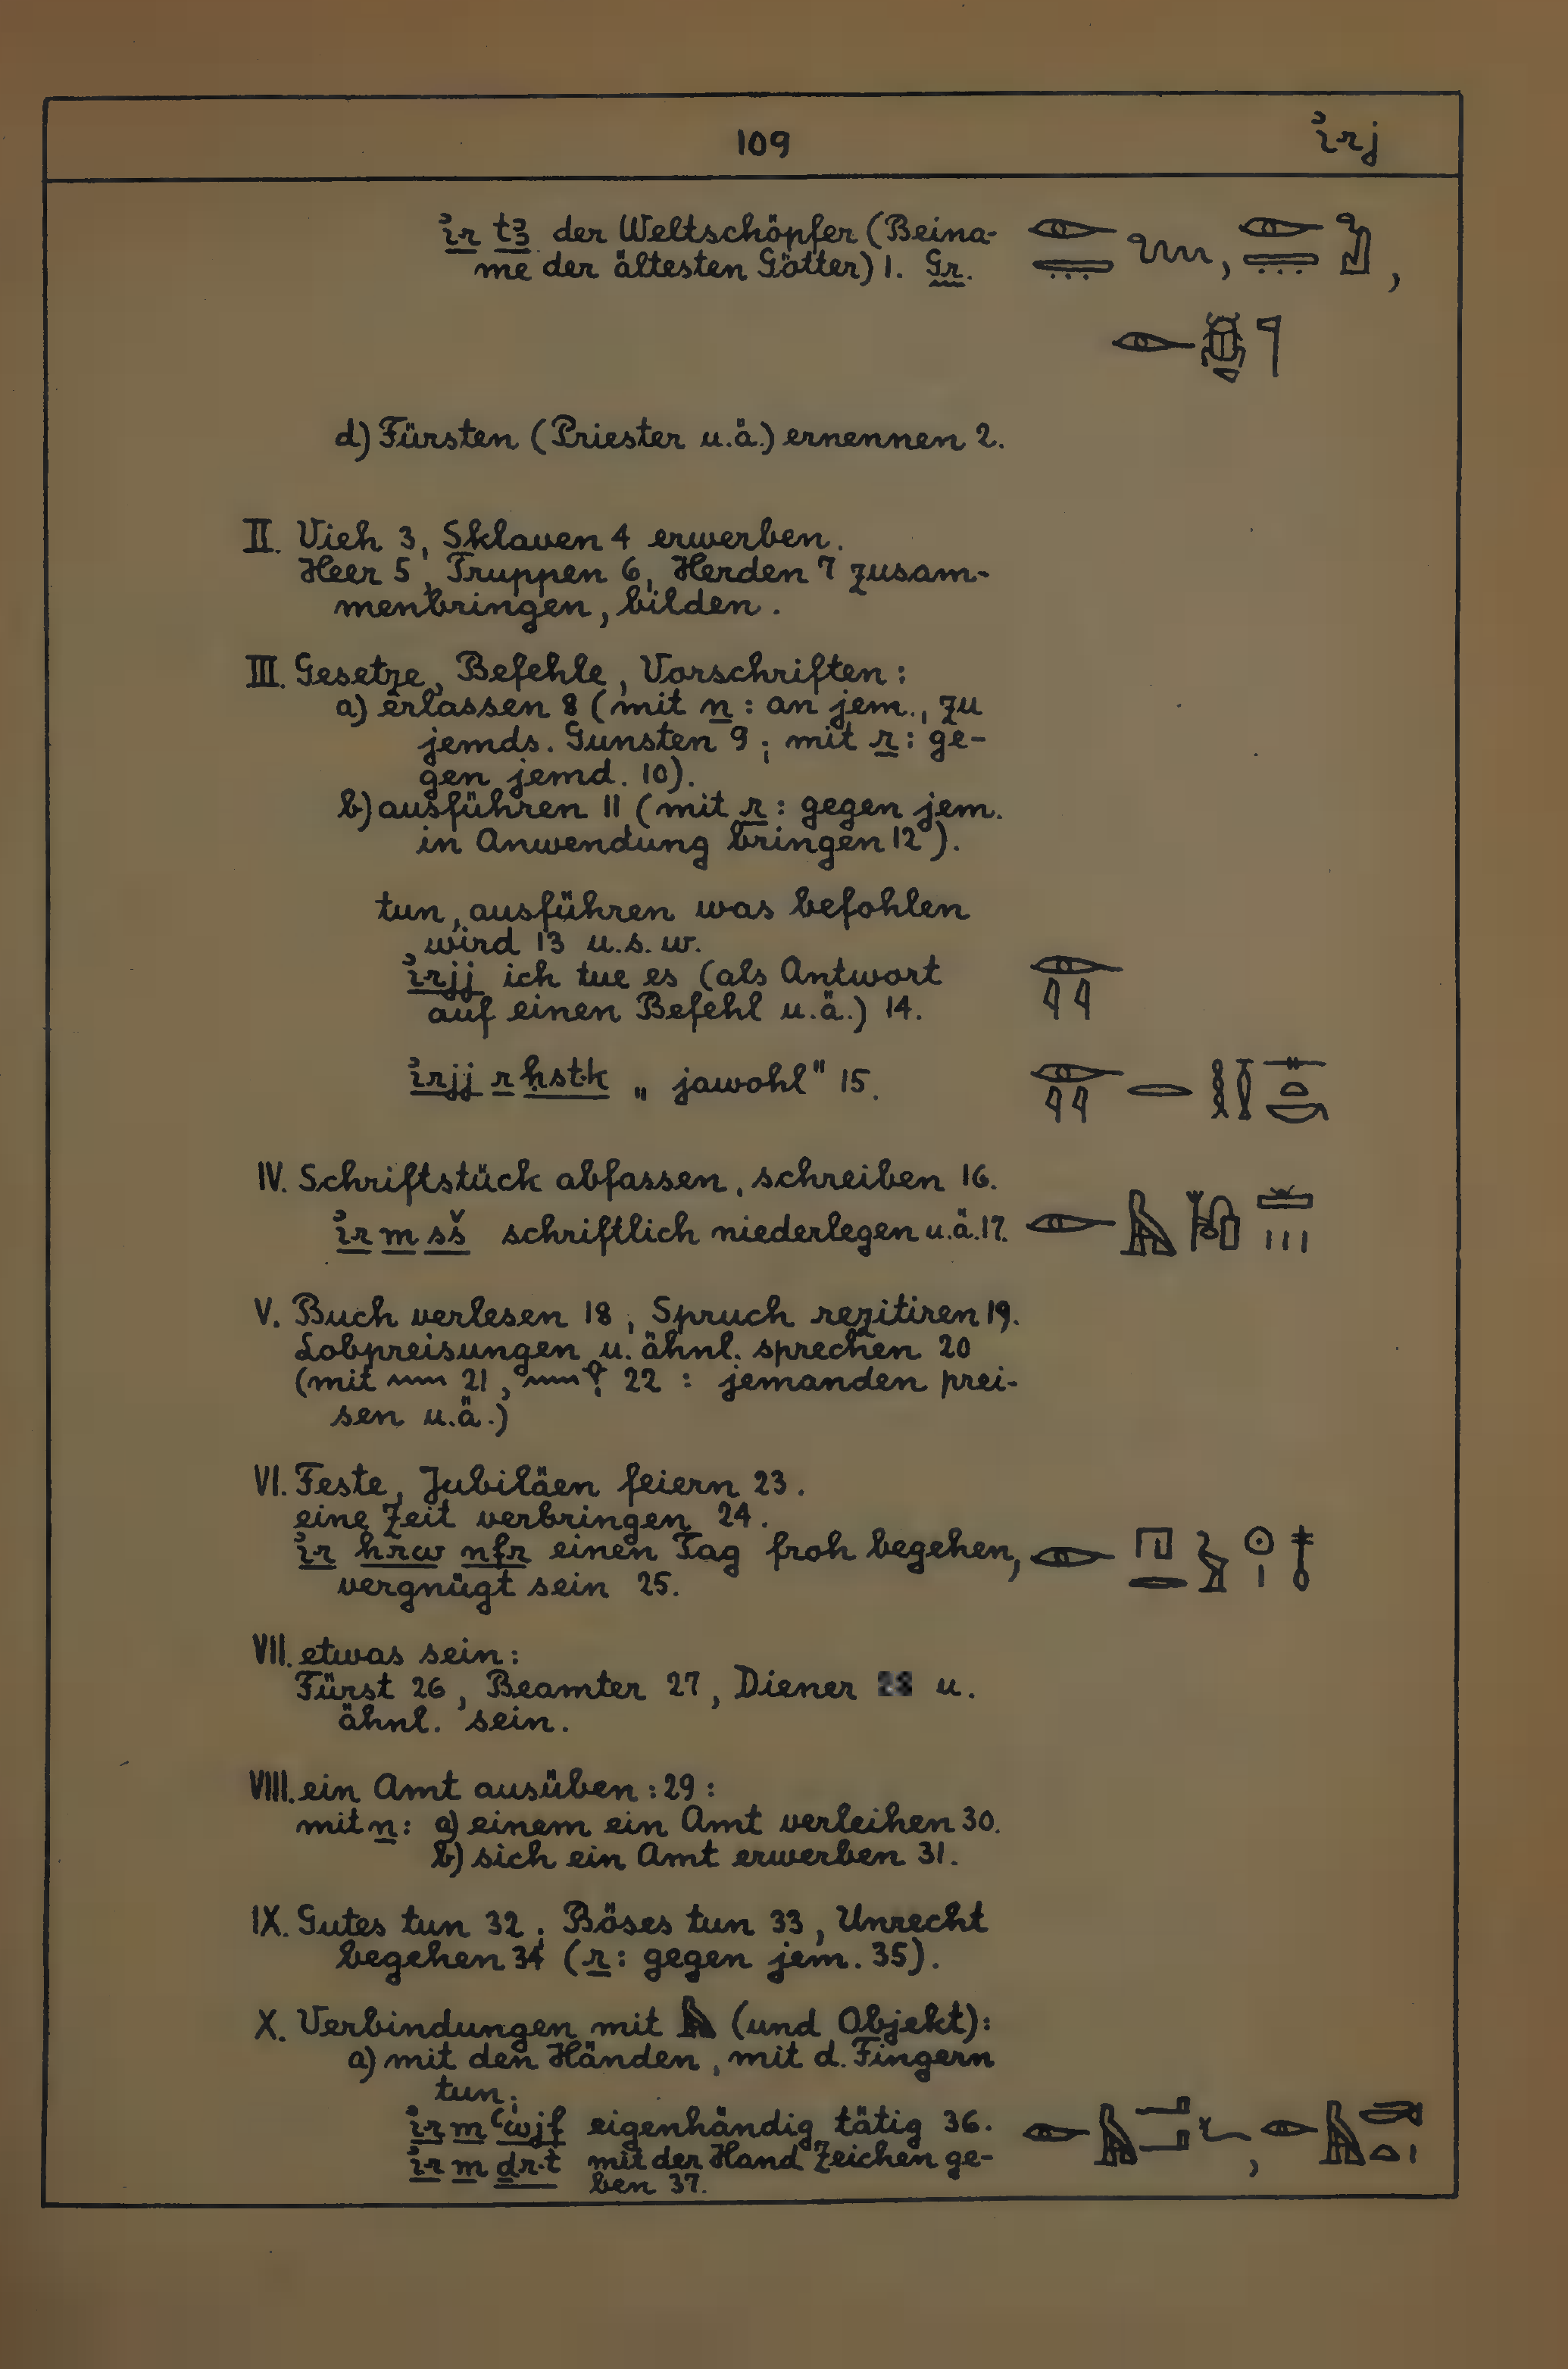 109 ꞽrj
ꞽr tꜣ der Weltschöpfer (Beina-
me der ältesten Götter) 1. Gr.
d) Fürsten (Priester u.ä.) ernennen 2.
II. Vieh 3, Sklaven 4 erwerben.
Heer 5, Truppen 6, Herden 7 zusam-
menbringen, bilden.
III. Gesetze, Befehle, Vorschriften:
a) erlassen 8 (mit n: an jem., zu
jemds. Gunsten 9; mit r: ge-
gen jemd. 10).
b) ausführen 11 (mit r: gegen jem.
in Anwendung bringen 12).
tun, ausführen was befohlen
wird 13 u.s.w.
ꞽrjj ich tue es (als Antwort
auf einen Befehl u.ä.) 14.
ꞽrjj r ḥst·k „jawohl" 15.
IV. Schriftstück abfassen, schreiben 16.
ꞽr m sš schriftlich niederlegen u.ä. 17.
V. Buch verlesen 18, Spruch rezitiren 19.
Lobpreisungen u. ähnl. sprechen 20
(mit 𓈖 21, 𓈖𓁷 22 : jemanden prei-
sen u.ä.)
VI. Feste, Jubiläen feiern 23.
eine Zeit verbringen 24.
ꞽr hrw nfr einen Tag froh begehen,
vergnügt sein 25.
VII. etwas sein:
Fürst 26, Beamter 27, Diener u.
ähnl. sein.
VIII. ein Amt ausüben: 29:
mit n: a) einem ein Amt verleihen 30.
b) sich ein Amt erwerben 31.
IX. Gutes tun 32; Böses tun 33, Unrecht
begehen 34 (r: gegen jem. 35).
X. Verbindungen mit 𓅓 (und Objekt):
a) mit den Händen, mit d. Fingern
tun:
ꞽr m ꜥwjf eigenhändig tätig 36.
ꞽr m ḏr·t mit der Hand Zeichen ge-
ben 37.